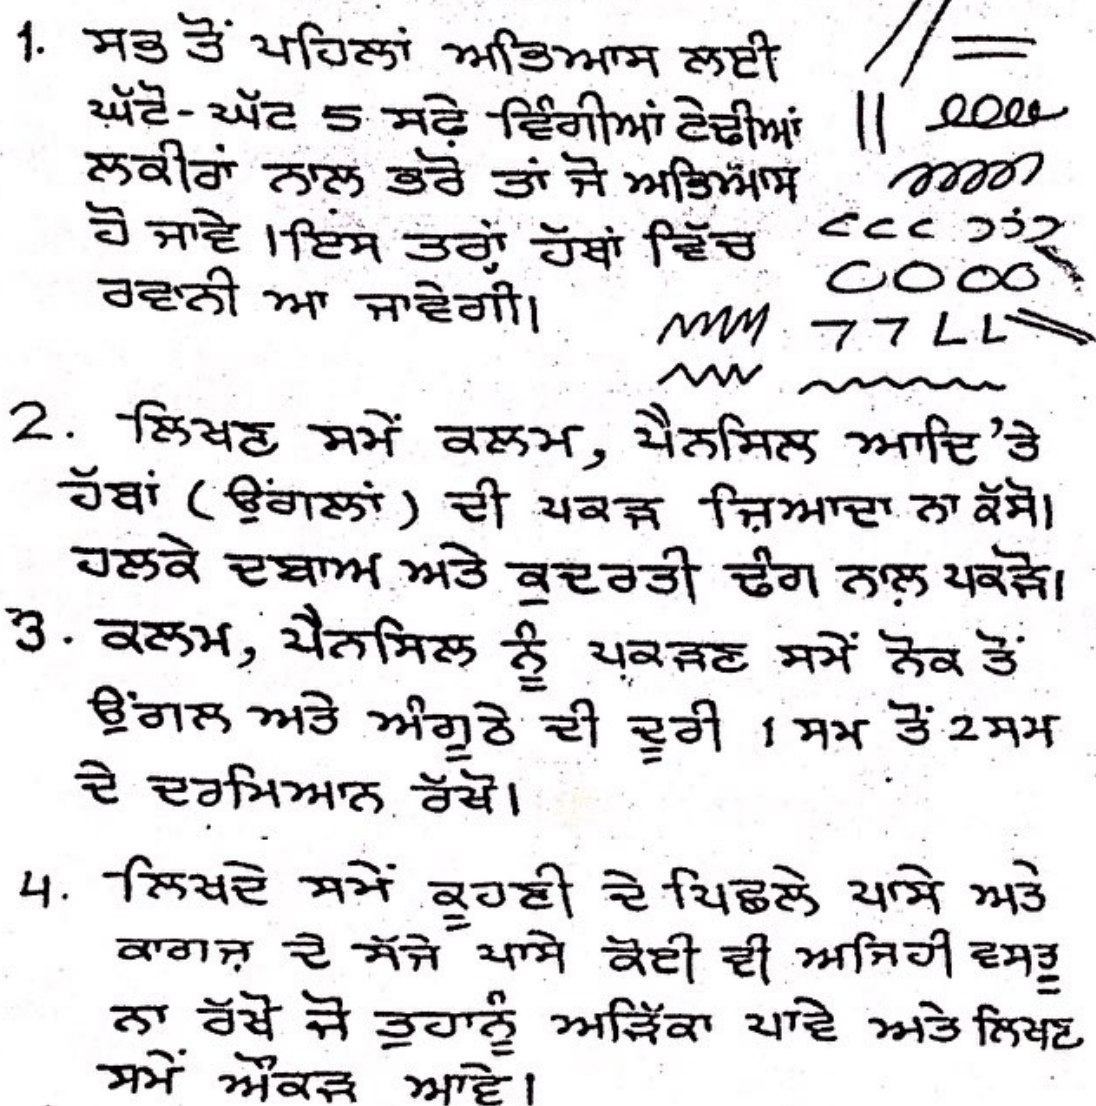 1. ਸਭ ਤੋਂ ਪਹਿਲਾਂ ਅਭਿਆਸ ਲਈ
ਘੱਟੋ-ਘੱਟ 5 ਸਫ਼ੇ ਵਿੰਗੀਆਂ ਟੇਢੀਆਂ
ਲਕੀਰਾਂ ਨਾਲ਼ ਭਰੋ ਤਾਂ ਜੋ ਅਭਿਆਸ
ਹੋ ਜਾਵੇ। ਇਸ ਤਰ੍ਹਾਂ ਹੱਥਾਂ ਵਿੱਚ
ਰਵਾਨੀ ਆ ਜਾਵੇਗੀ।
2. ਲਿਖਣ ਸਮੇਂ ਕਲਮ, ਪੈਨਸਿਲ ਆਦਿ 'ਤੇ
ਹੱਥਾਂ (ਉਂਗਲਾਂ) ਦੀ ਪਕੜ ਜ਼ਿਆਦਾ ਨਾ ਕੱਸੋ।
ਹਲਕੇ ਦਬਾਅ ਅਤੇ ਕੁਦਰਤੀ ਢੰਗ ਨਾਲ਼ ਪਕੜੋ।
3. ਕਲਮ, ਪੈਨਸਿਲ ਨੂੰ ਪਕੜਣ ਸਮੇਂ ਨੋਕ ਤੋਂ
ਉਂਗਲ ਅਤੇ ਅੰਗੂਠੇ ਦੀ ਦੂਰੀ 1 ਸਮ ਤੋਂ 2 ਸਮ
ਦੇ ਦਰਮਿਆਨ ਰੱਖੋ।
4. ਲਿਖਦੇ ਸਮੇਂ ਕੂਹਣੀ ਦੇ ਪਿਛਲੇ ਪਾਸੇ ਅਤੇ
ਕਾਗਜ਼ ਦੇ ਸੱਜੇ ਪਾਸੇ ਕੋਈ ਵੀ ਅਜਿਹੀ ਵਸਤੂ
ਨਾ ਰੱਖੋ ਜੋ ਤੁਹਾਨੂੰ ਅੜਿੱਕਾ ਪਾਵੇ ਅਤੇ ਲਿਖਣ
ਸਮੇਂ ਔਕੜ ਆਵੇ।